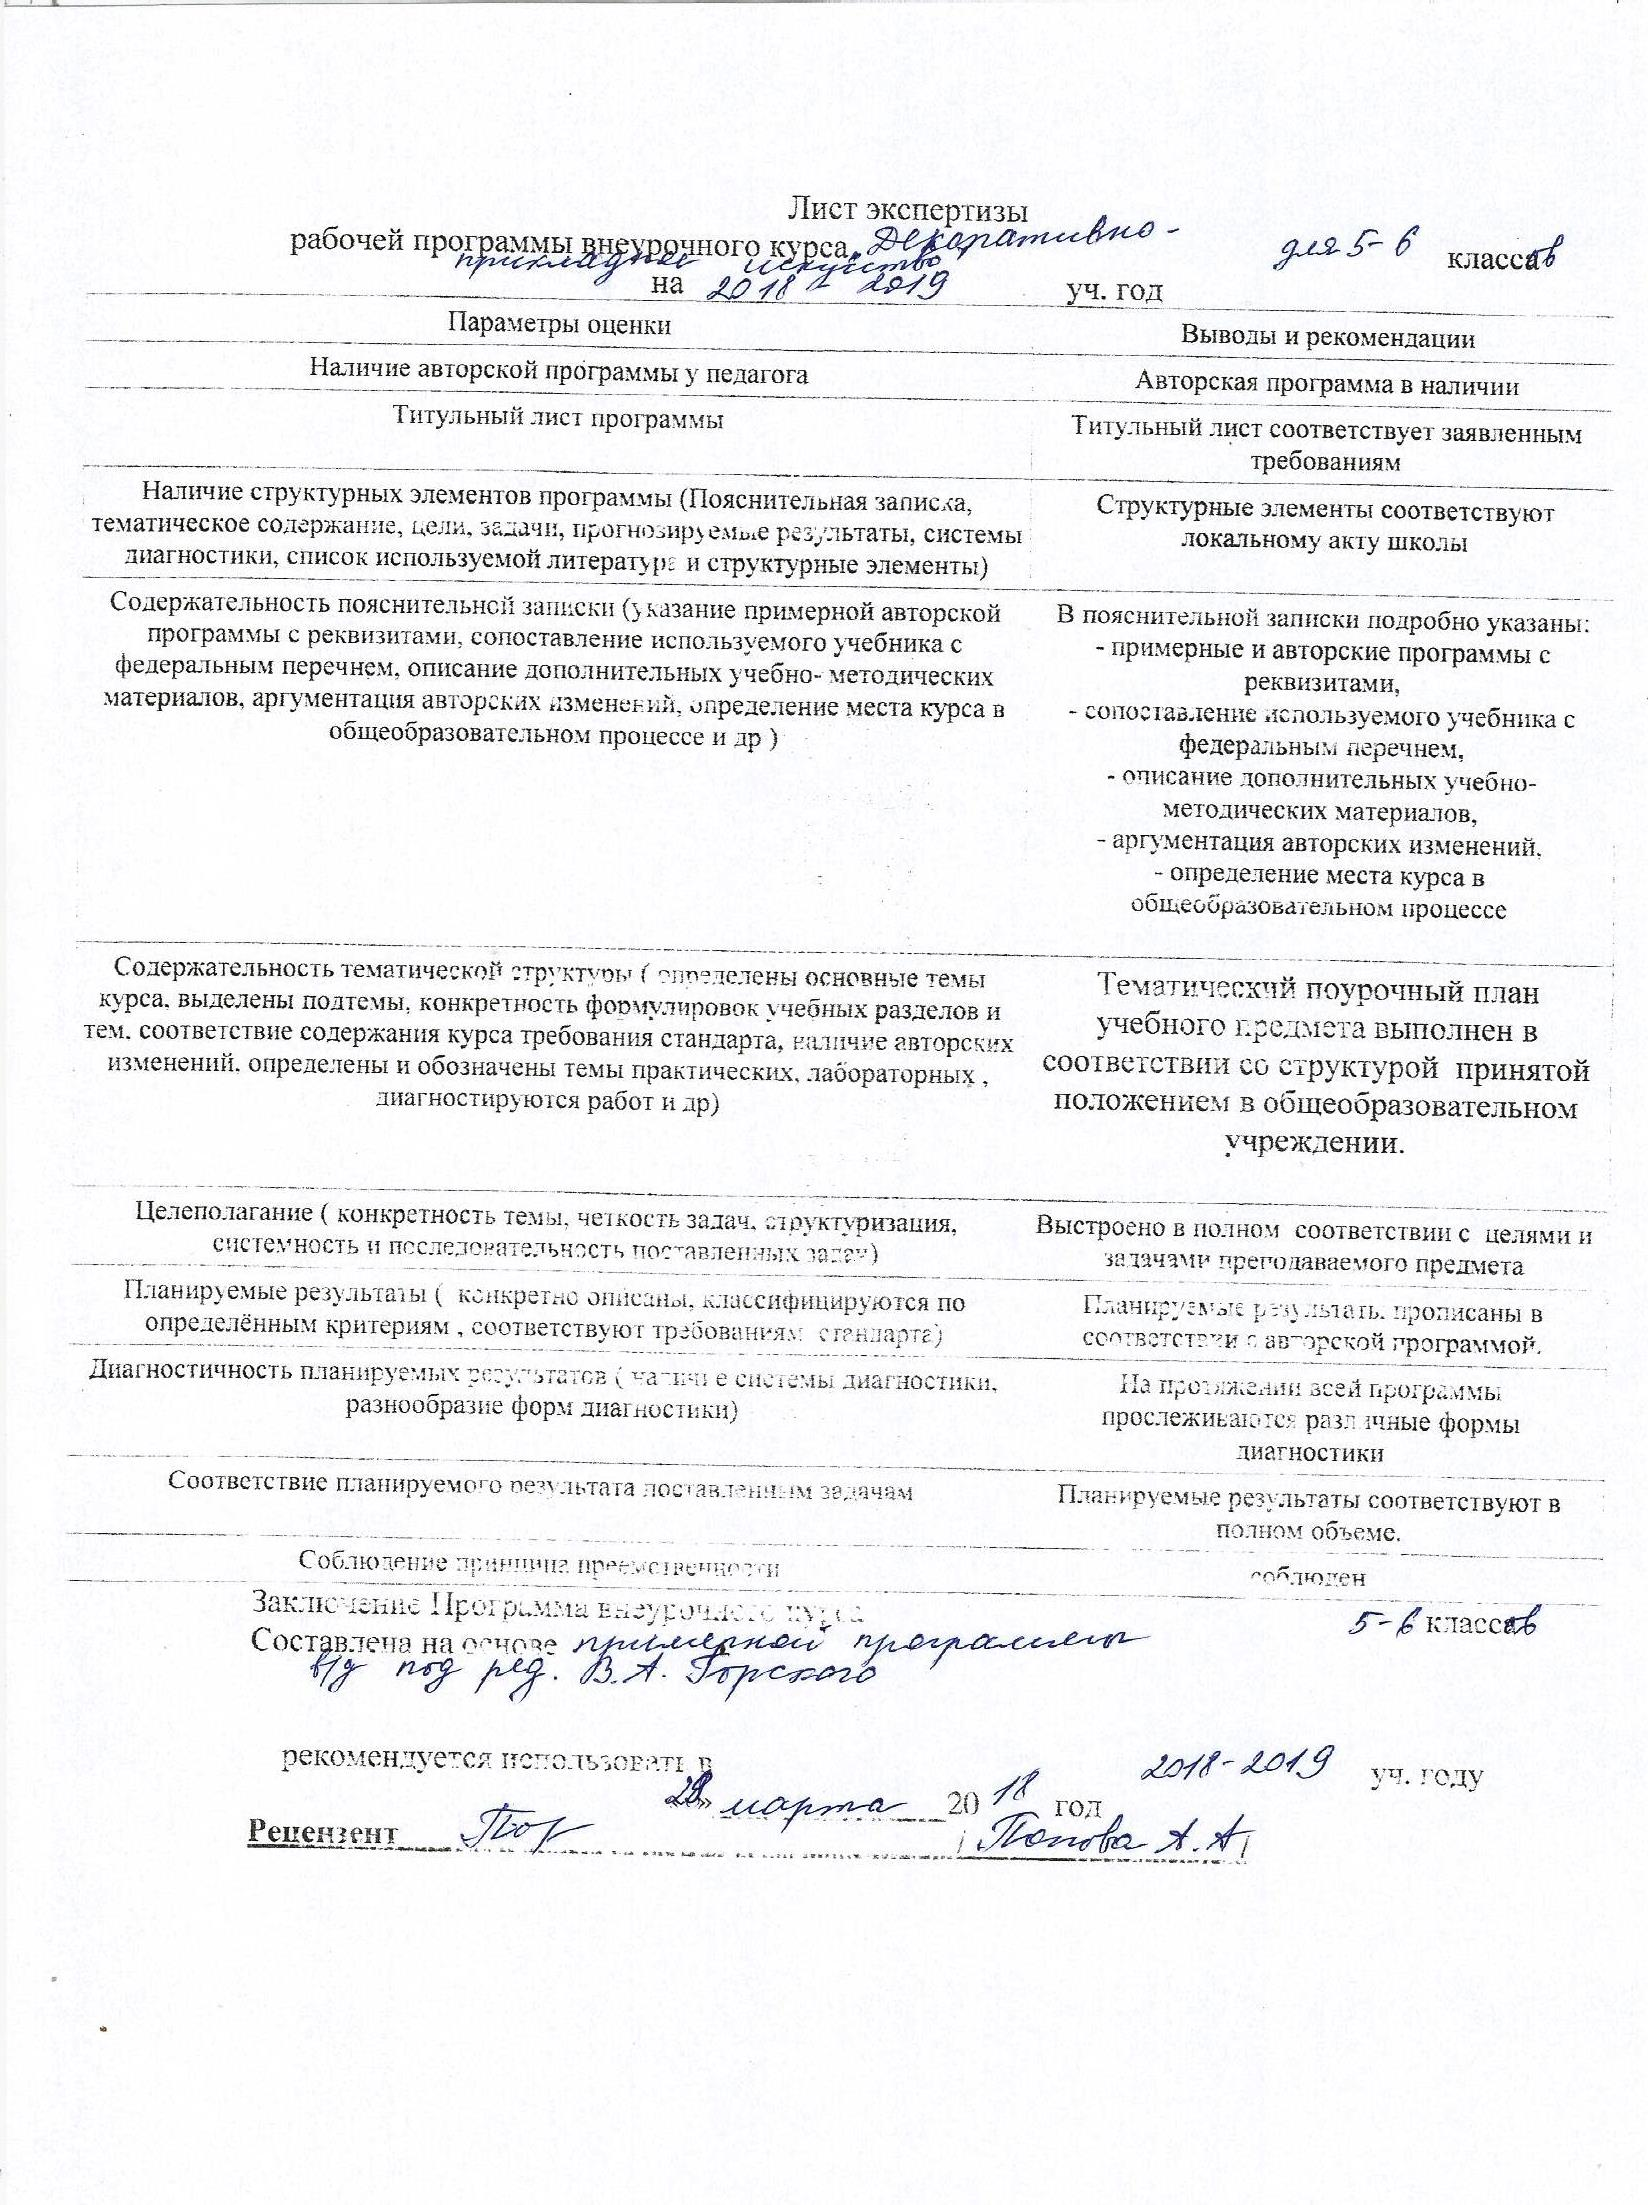 Лист экспертизы
рабочей программы внеурочного курса Декоративно-
прикладное искусство для 5-6 классов
на 2018 - 2019 уч. год
Параметры оценки
Выводы и рекомендации
Наличие авторской программы у педагога
Авторская программа в наличии
Титульный лист программы
Титульный лист соответствует заявленным
требованиям
Наличие структурных элементов программы (Пояснительная записка,
тематическое содержание, цели, задачи, прогнозируемые результаты, системы
диагностики, список используемой литературе и структурные элементы)
Структурные элементы соответствуют
локальному акту школы
Содержательность пояснительной записки (указание примерной авторской
программы с реквизитами, сопоставление используемого учебника с
федеральным перечнем, описание дополнительных учебно- методических
материалов, аргументация авторских изменений, определение места курса в
общеобразовательном процессе и др )
В пояснительной записки подробно указаны:
- примерные и авторские программы с
реквизитами,
- сопоставление используемого учебника с
федеральным перечнем,
- описание дополнительных учебно-
методических материалов,
- аргументация авторских изменений,
- определение места курса в
общеобразовательном процессе
Содержательность тематической структуры ( определены основные темы
курса, выделены подтемы, конкретность формулировок учебных разделов и
тем, соответствие содержания курса требования стандарта, наличие авторских
изменений, определены и обозначены темы практических, лабораторных ,
диагностируются работ и др)
Тематический поурочный план
учебного предмета выполнен в
соответствии со структурой принятой
положением в общеобразовательном
учреждении.
Целеполагание ( конкретность темы, четкость задач, структуризация,
системность и последовательность поставленных задач)
Выстроено в полном соответствии с целями и
задачами преподаваемого предмета
Планируемые результаты ( конкретно описаны, классифицируются по
определённым критериям , соответствуют требованиям стандарта)
Планируемые результаты прописаны в
соответствии с авторской программой.
Диагностичность планируемых результатов ( наличие системы диагностики,
разнообразие форм диагностики)
На протяжении всей программы
прослеживаются различные формы
диагностики
Соответствие планируемого результата поставленным задачам
Планируемые результаты соответствуют в
полном объеме.
Соблюдение принципа преемственности
соблюден
Заключение Программа внеурочного курса 5-6 классов
Составлена на основе примерной программы
в/д под ред. В.А. Горского
рекомендуется использовать в 2018-2019 уч. году
марта 2018 год
Рецензент ( Попова А.А)